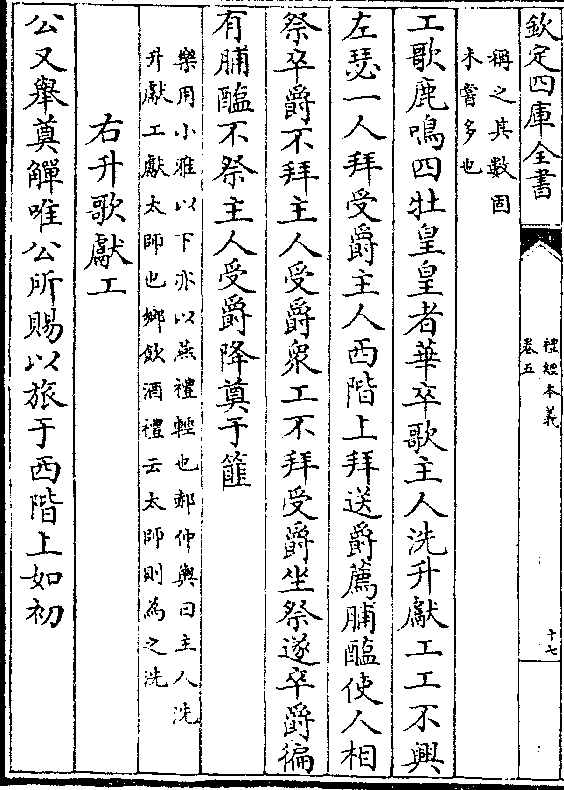 欽定四庫全書
禮經本義
卷五
十七
稱之其數固
未嘗多也
工歌鹿鳴四牡皇皇者華卒歌主人洗升獻工工不興
左瑟一人拜受爵主人西階上拜送爵薦脯醢使人相
祭卒爵不拜主人受爵衆工不拜受爵坐祭遂卒爵徧
有脯醢不祭主人受爵降奠于篚
樂用小雅以下亦以燕禮輕也郝仲輿曰主人洗
升獻工獻太師也鄉飲酒禮云太師則為之洗
右升歌獻工
公又舉奠觶唯公所賜以旅于西階上如初